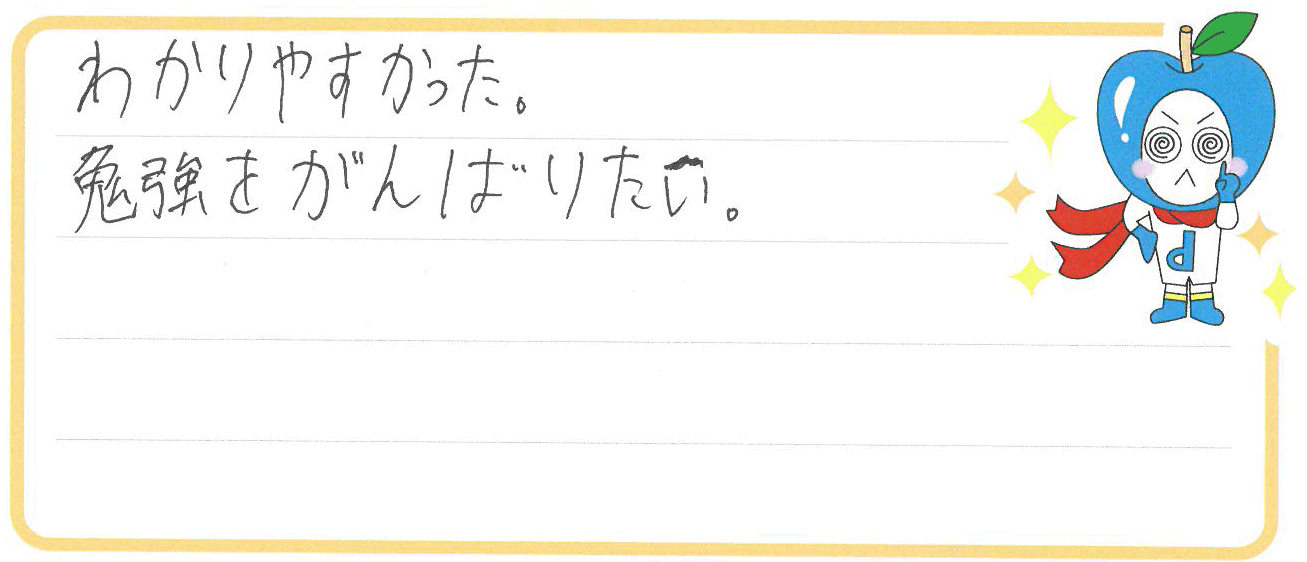 わかりやすかった。
勉強をがんばりたい。
d